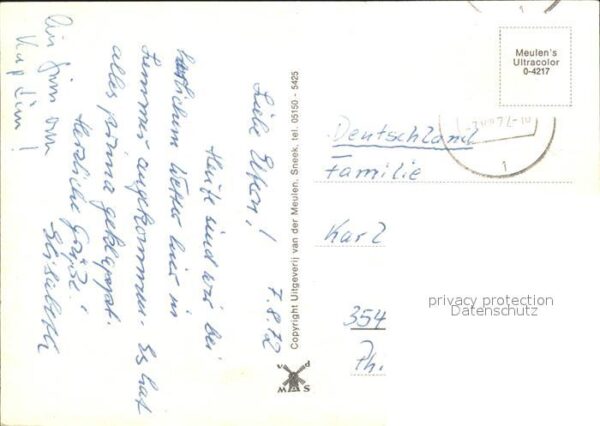 7.8.72
Liebe Eltern!
Heute sind wir bei
herrlichem Wetter hier in
Lemmer angekommen. Es hat
alles prima geklappt.
Herzliche Grüße!
Elisabeth
Copyright Uitgeverij van der Meulen, Sneek, tel. 05150 - 5425
Meulen's
Ultracolor
0-4217
Deutschland
Familie
Karl
354
Th.
privacy protection
Datenschutz